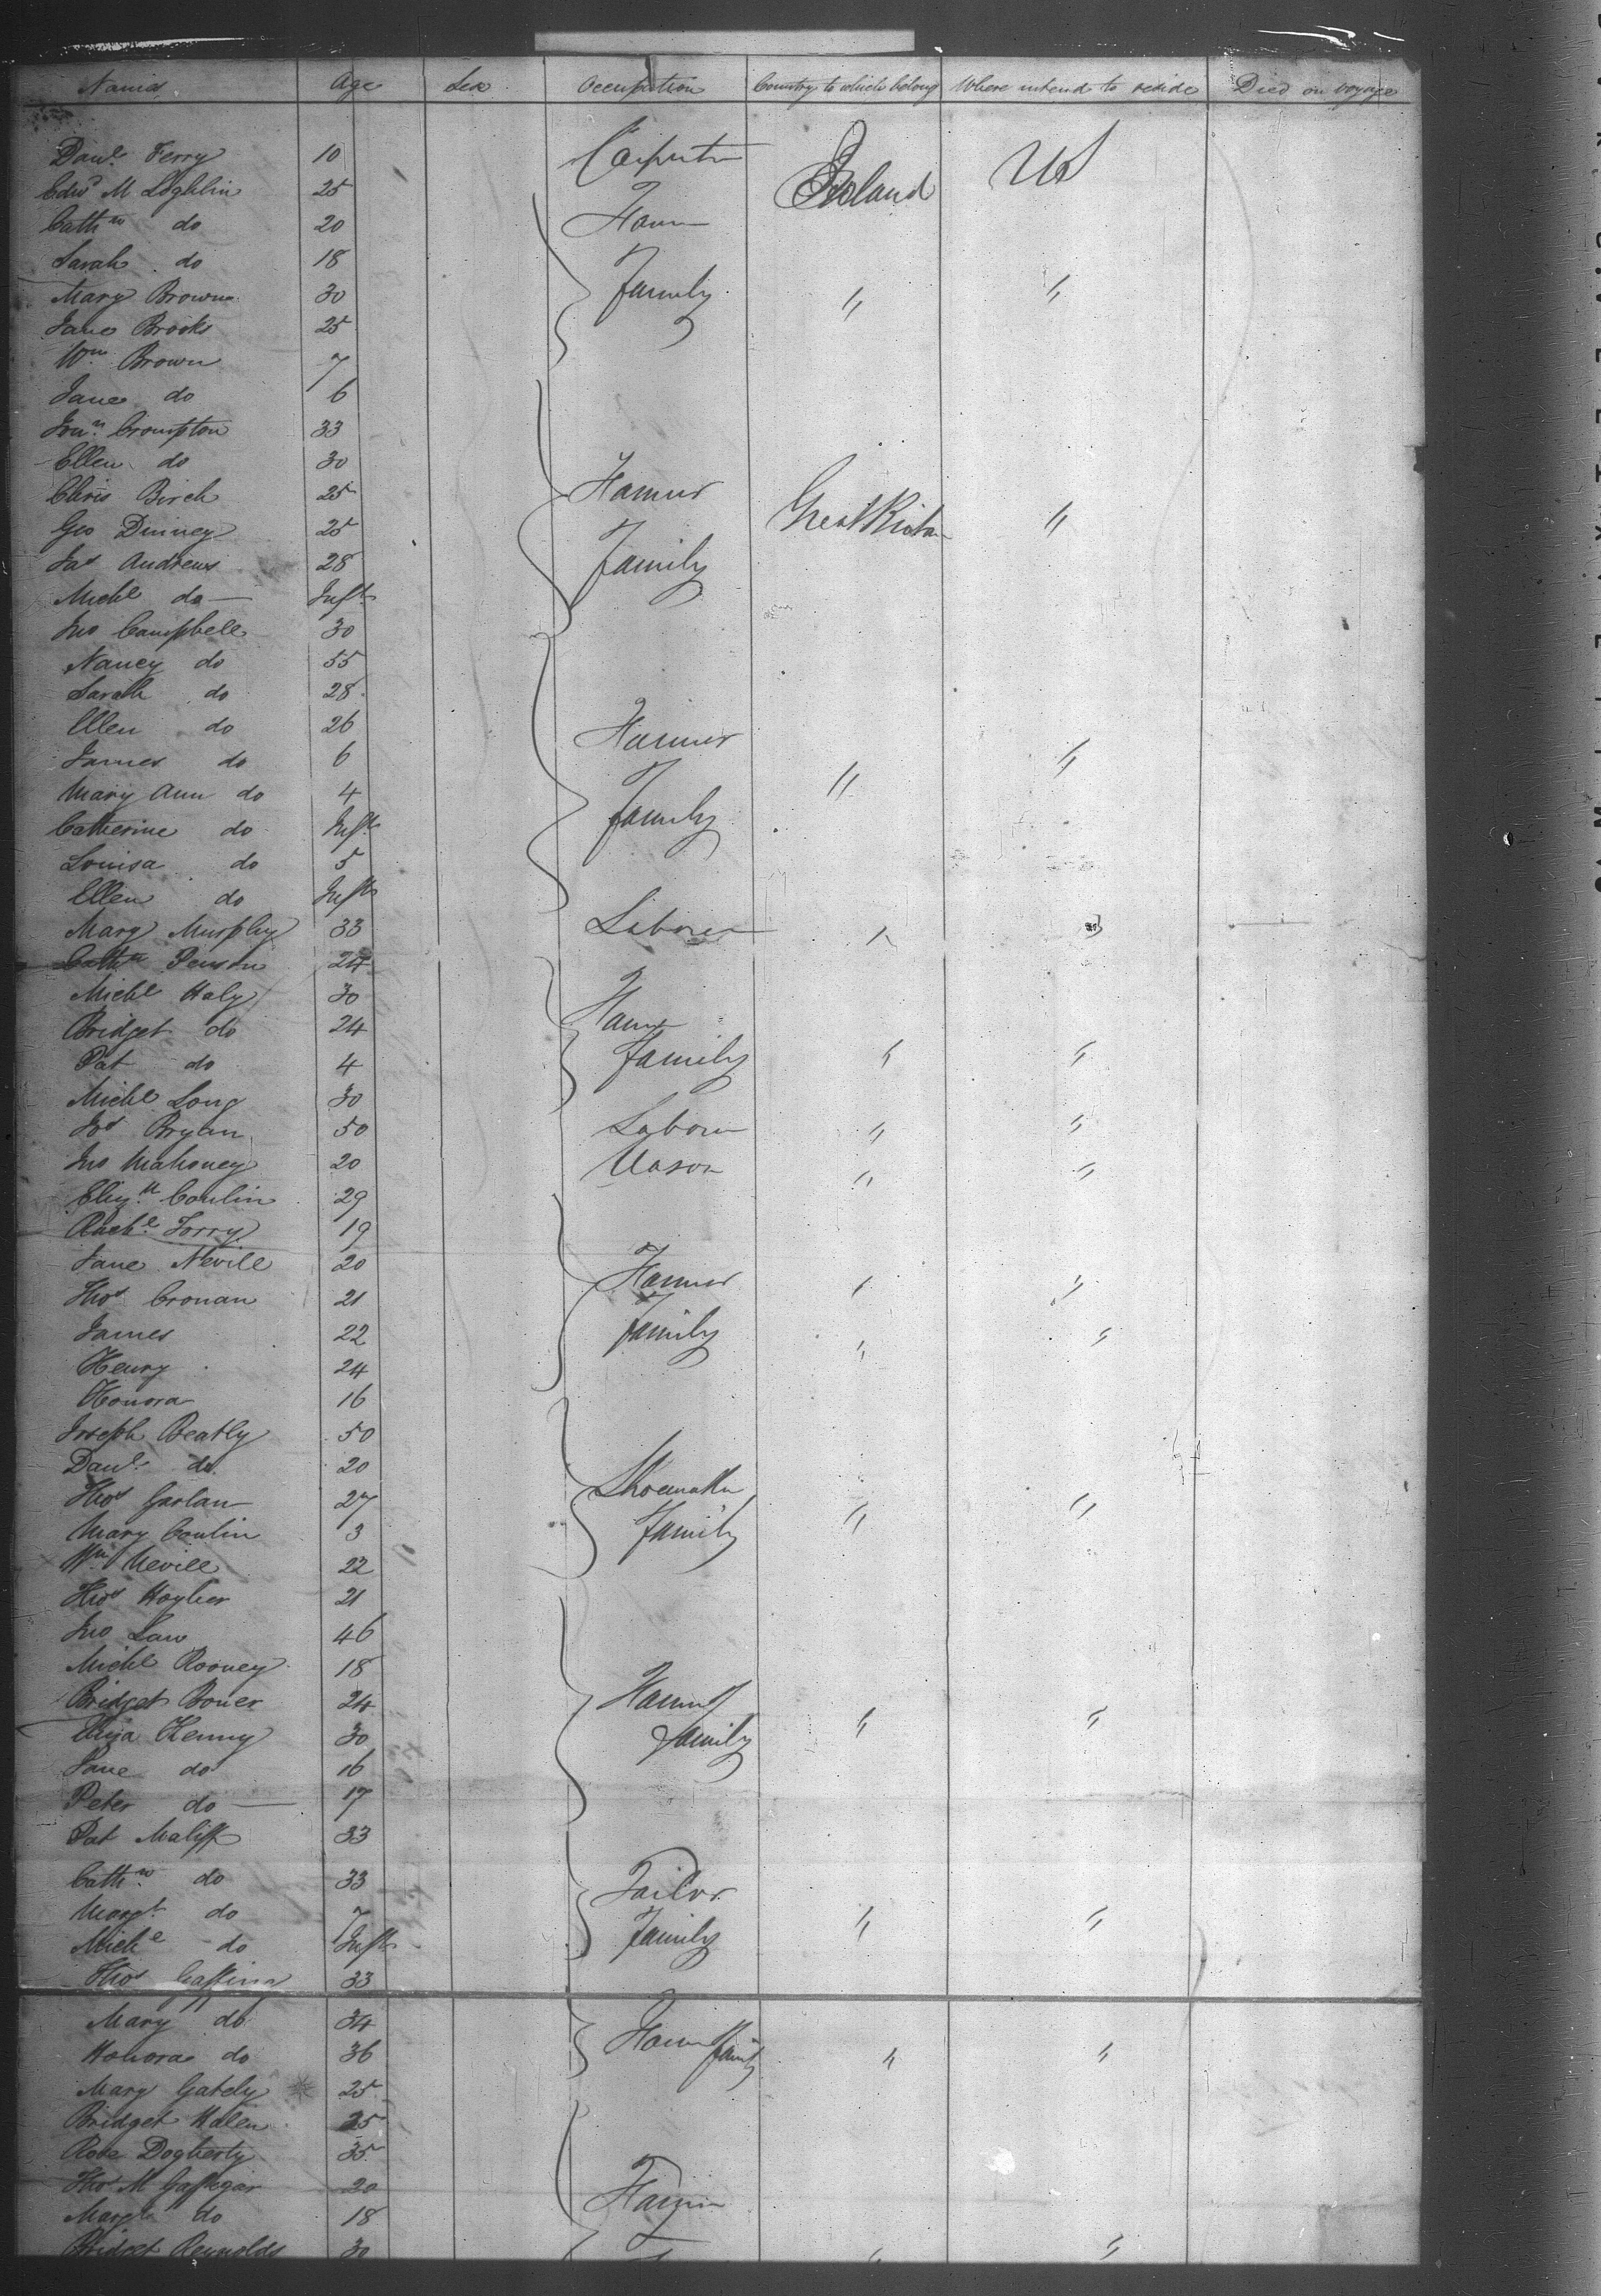 Names Age Sex Occupation Country to which belong Where intend to reside Died on voyage
Danl. Ferry 10 Carpentr
Edwd M Loghlin 25 Ireland US
Cathne do 20 Farm
Sarah do 18
Mary Brown 30 Family " "
Jane Brooks 25
Wm Brown 7
Jane do 6
Jonn. Crompton 33
Ellen do 30
Chris Birch 25 Farmer
Geo Dinney 25 Great Britn "
Jas Andrews 28 Family
Michl do — Inft
Jno Campbell 30
Nancy do 55
Sarah do 28
Ellen do 26 Farmer
James do 6 "
Mary Ann do 4 "
Catherine do Inft Family
Louisa do 5
Ellen do Inft
Mary Murphy 33 Laborer " "
Cathn 24
Michl Haly 30
Bridget do 24 Farmr
Pat do 4 Family " "
Michl Long 30
Jos Bryan 50 Labour " "
Jno Mahoney 20 Mason " "
Elizth Conlin 29
Rachl. Torry 19
Jane Nevill 20 Farmer
Thos Cronan 21 " "
James 22 Family " "
Henry 24
Honora 16
Joseph Beatly 50
Danl. do 20
Thos Garlan 27 Shoemaker " "
Mary Conlin 3 Family
Wm Nevill 22
Thos 21
Jno Law 46
Michl Rooney 18
Bridget Boner 24 Farmer
Eliza Kenny 30 Family " "
Jane do 16
Peter do — 17
Pat Maliff 33
Cathne do 33 Tailor
Margt do 7 " "
Michl do Inft Family
Thos Gaffina 33
Mary do 34 Farmer
Honora do 36 Family " "
Mary Gately 25
Bridget Halen 25
Rose Dogherty 35
Thos M 20 Farmer
Margt do 18
Bridget Reynolds 30 " "